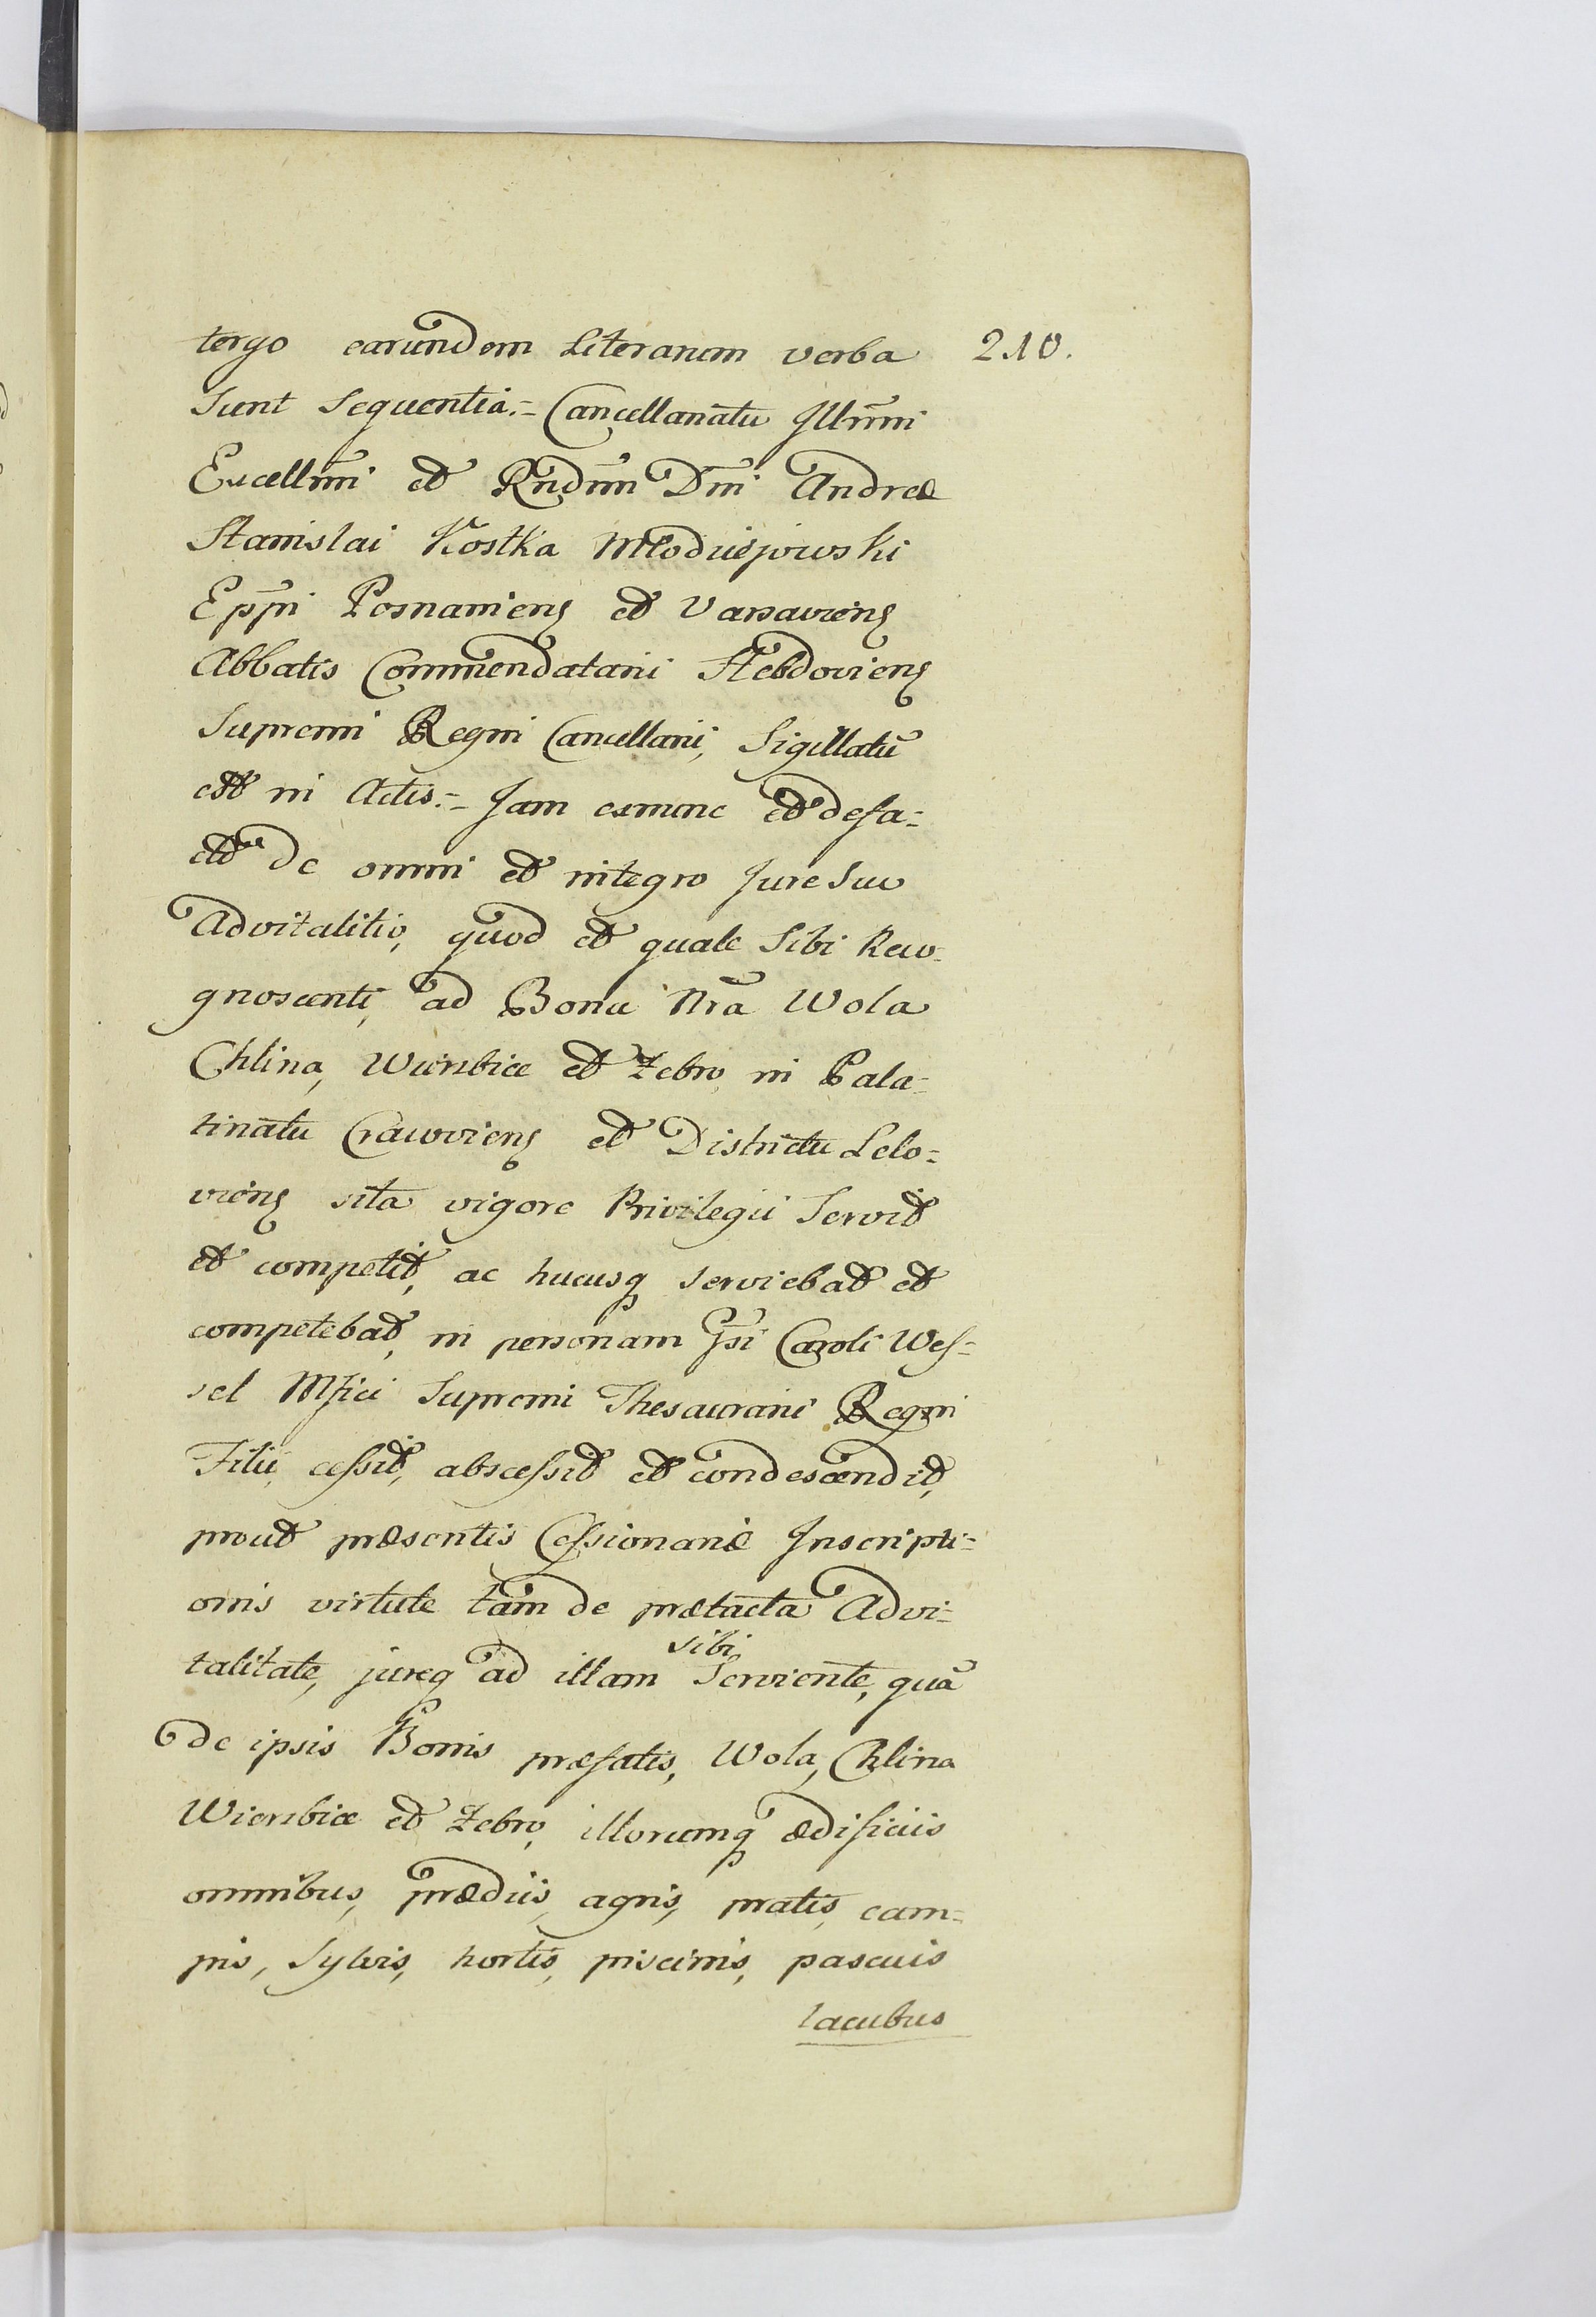 tergo earundem Literarum verba 210.
sunt sequentia.= Cancellariatu Jllrm̃i
Excellm̃i et Rndm̃i Dm̃i Andreæ
Stanislai Kostka Młodziejowski
Epp̃i Posnaniens et Varsaviens
Abbatis Commendatarii Hebdoviens
Supremi Regni Cancellarii, Sigillatũ
est in Actis.= Jam exnunc et de fa=
cto de omni et integro Jure Suo
Advitalitio, quod et quale Sibi Reco=
gnoscenti, ad Bona Nr̃a Wola
Chlina, Wierzbice et Zebro, in Pala=
tinatu Cracoviens et Districtu Lelo=
viens sita vigore Privilegii Servit
et competit, ac hucusq serviebat et
competebat, in personam Gsi Caroli Wes=
sel Mfici Supremi Thesaurarii Regni
Filii, cessit, abscessit et condescendit,
prout præsentis Cessionariæ Jnscripti=
onis virtute tam de prætacta Advi=
talitate, jureq ad illam sibi Serviente, quã
de ipsis Bonis præfatis, Wola, Chlina
Wierzbice et Zebro, illorumq ædificiis
omnibus, prædiis, agris, pratis, cam=
pis, Sylvis, hortis, piscinis, pascuis
lacubus